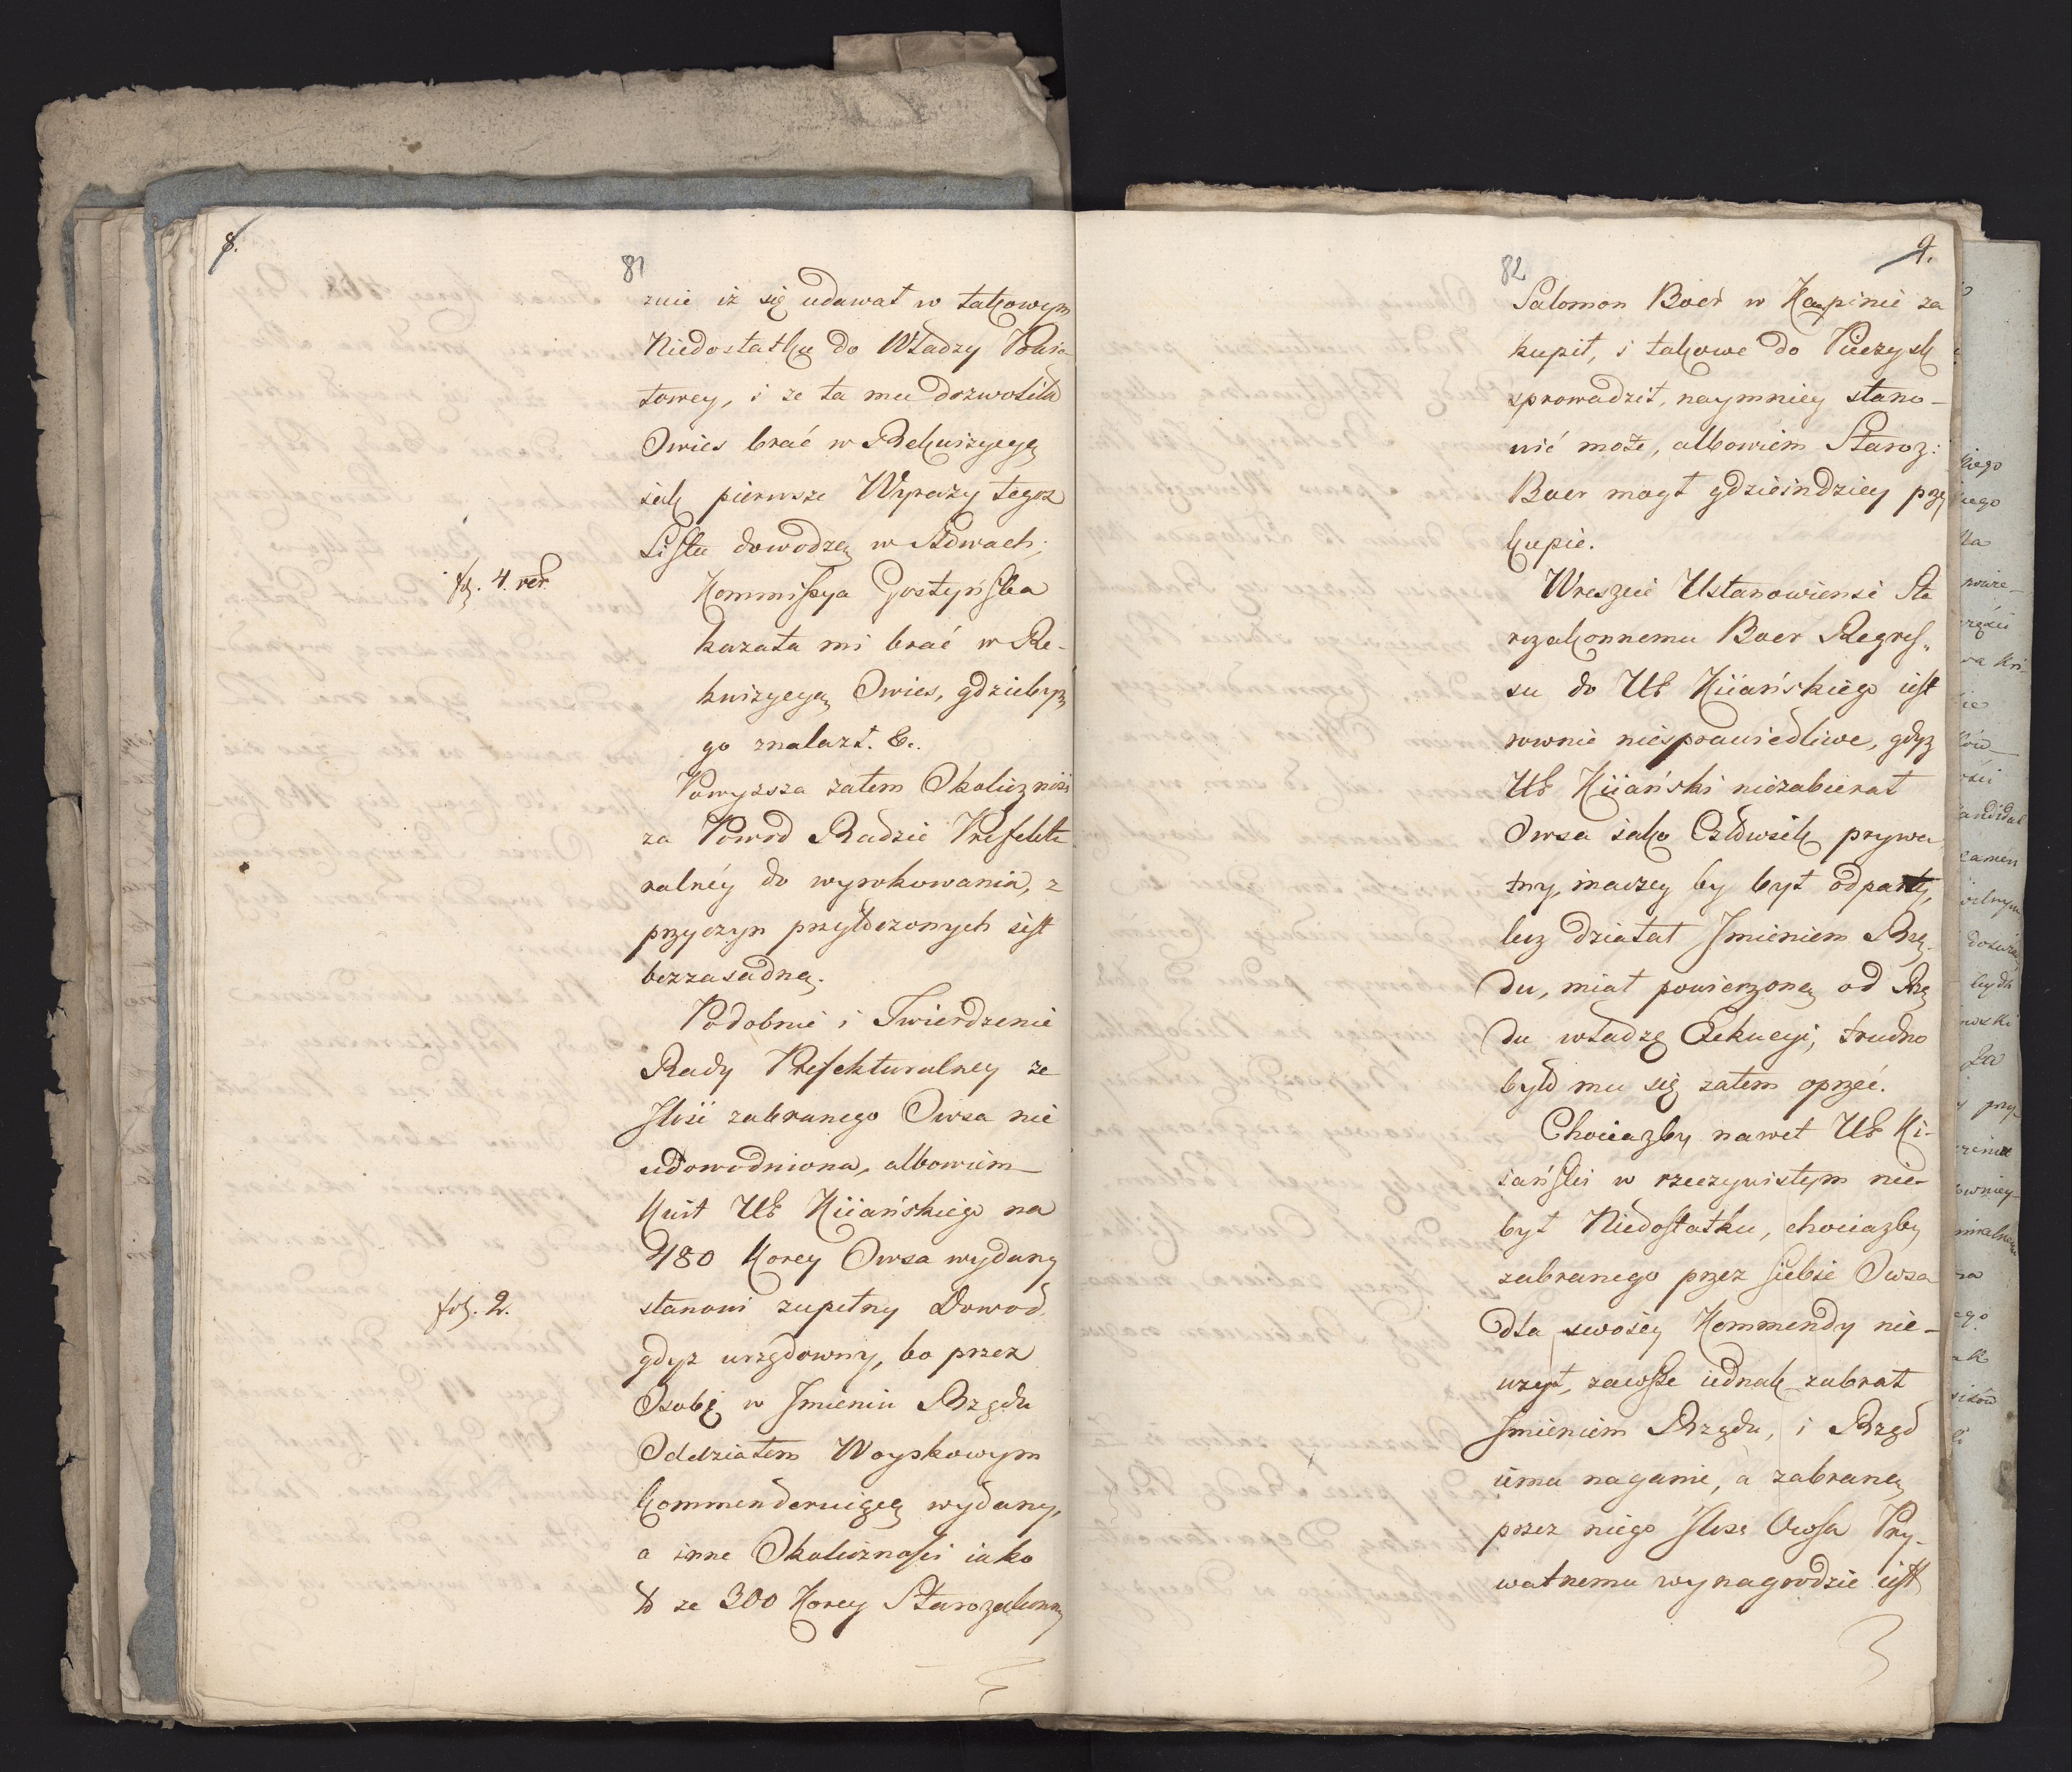 8.
81
znie iż się udawał w takowym
Niedostatku do Władzy Powia
towey, i ze ta mu dozwoliła
Owies brać w Rekwizycyą
iak pierwsze Wyrazy tegoz
Listu dowodzą w Słowach;
fol. 4. ver.
Kommissya Gostyńska
kazała mi brać w Re-
kwizycyą Owies, gdziebym
go znalazł. &c.
Powyzsza zatem Okoliczność
za Powod Radzie Prefektu
ralnéy do wyrokowania, z
przyczyn przyłączonych iest
bezzasadną.
Podobnie i Twierdzenie
Rady Prefekturalney ze
Jlość zabranego Owsa nie
udowodniona, albowiem
Kwit Ur Kiiańskiego na
480 Korcy Owsa wydany
fol. 2.
stanowi zupełny Dowod,
gdyz urzędowny, bo przez
Osobę w Jmieniu Rządu
Oddziałem Woyskowym
kommenderuiącą wydany,
a inne Okoliczności iako
to ze 300 Korcy Starozakonny
9.
82
Salomon Baer w Kapinie za
kupił, i takowe do Pieczysk
sprowadził, naymniey stano-
wić może, albowiem Staroz:
Baer mogł gdzieindziey przy
kupić.
Wreszcie Ustanowienie Sta
rozakonnemu Baer Regres„
su do Ur Kiiańskiego iest
rownie niesprawiedliwe, gdyz
Ur Kiiański niezabierał
Owsa iako Człowiek prywa
tny, inaczey by był odparty,
lecz działał Jmieniem Rzą-
du, miał powierzoną od Rzą
du władzę Exekucyi, trudno
było mu się zatem oprzeć.
Chociazby nawet Ur Ki-
iański w rzeczywistym nie-
był Niedostatku, chociazby
zabranego przez siebie Owsa
dla swoiéy Kommendy nie-
uzył, zawsze iednak zabrał
Jmieniem Rządu, i Rząd
iemu naganie, a zabraną
przez niego Jlość Owsa Pry-
watnemu wynagrodzić iest